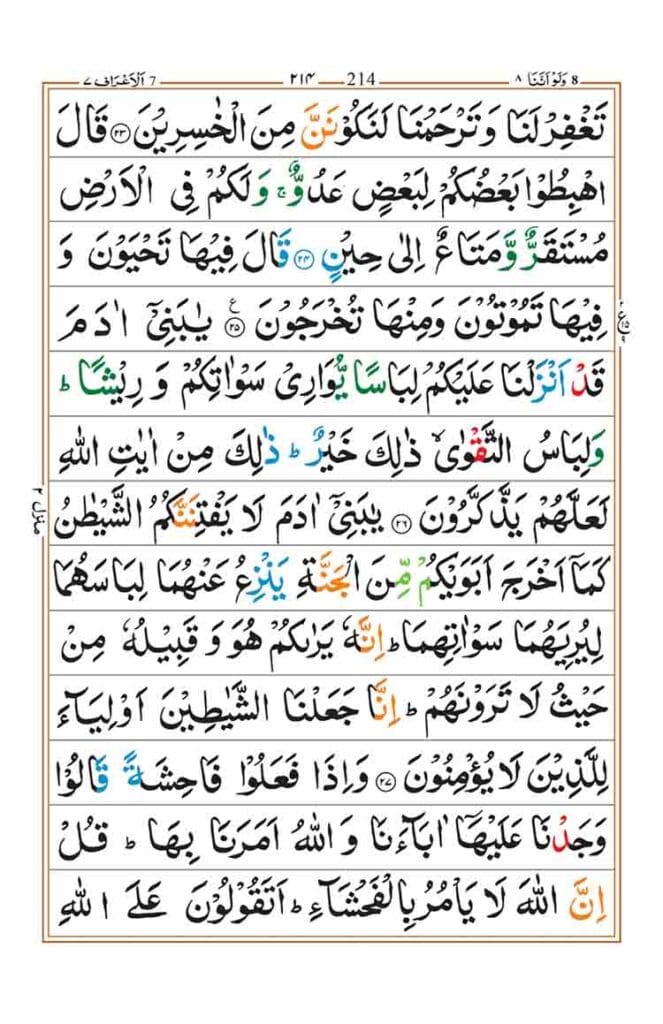 8 وَلَوْ اَنَّنَا ٨ 214 ٢١۴ 7 اَلْاَعْرَاف ٧
تَغْفِرْ لَنَا وَ تَرْحَمْنَا لَنَكُوْنَنَّ مِنَ الْخٰسِرِيْنَ ۝۲۳ قَالَ
اهْبِطُوْا بَعْضُكُمْ لِبَعْضٍ عَدُوٌّ ۚ وَ لَكُمْ فِى الْاَرْضِ
مُسْتَقَرٌّ وَّ مَتَاعٌ اِلٰى حِيْنٍ ۝۲۴ قَالَ فِيْهَا تَحْيَوْنَ وَ
فِيْهَا تَمُوْتُوْنَ وَ مِنْهَا تُخْرَجُوْنَ ۝۲۵ ع يٰبَنِىْۤ اٰدَمَ
قَدْ اَنْزَلْنَا عَلَيْكُمْ لِبَاسًا يُّوَارِىْ سَوْاٰتِكُمْ وَ رِيْشًا ؕ
وَ لِبَاسُ التَّقْوٰى ۙ ذٰلِكَ خَيْرٌ ؕ ذٰلِكَ مِنْ اٰيٰتِ اللّٰهِ
لَعَلَّهُمْ يَذَّكَّرُوْنَ ۝۲۶ يٰبَنِىْۤ اٰدَمَ لَا يَفْتِنَنَّكُمُ الشَّيْطٰنُ
كَمَاۤ اَخْرَجَ اَبَوَيْكُمْ مِّنَ الْجَنَّةِ يَنْزِعُ عَنْهُمَا لِبَاسَهُمَا
لِيُرِيَهُمَا سَوْاٰتِهِمَا ؕ اِنَّهٗ يَرٰىكُمْ هُوَ وَ قَبِيْلُهٗ مِنْ
حَيْثُ لَا تَرَوْنَهُمْ ؕ اِنَّا جَعَلْنَا الشَّيٰطِيْنَ اَوْلِيَآءَ
لِلَّذِيْنَ لَا يُؤْمِنُوْنَ ۝۲۷ وَ اِذَا فَعَلُوْا فَاحِشَةً قَالُوْا
وَجَدْنَا عَلَيْهَاۤ اٰبَآءَنَا وَ اللّٰهُ اَمَرَنَا بِهَا ؕ قُلْ
اِنَّ اللّٰهَ لَا يَاْمُرُ بِالْفَحْشَآءِ ؕ اَتَقُوْلُوْنَ عَلَى اللّٰهِ
منزل ٢